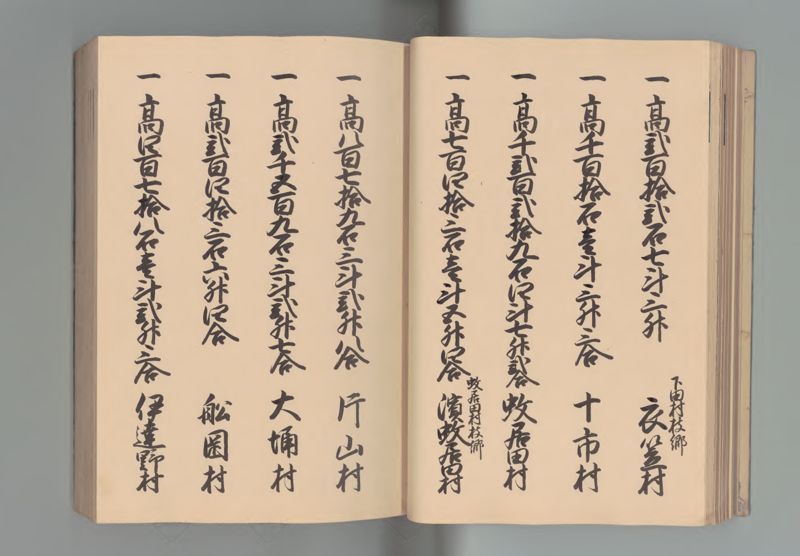 一高弐百拾弐石七斗三升
下田村枝郷
衣笠村
一高千百拾石壱斗三升三合
十市村
一高千弐百弐拾九石四斗七升弐合
蚊居田村
一高七百四拾三石壱斗五升四合
蚊居田村枝郷
濱蚊居田村
一高八百七拾九石三斗弐升八合
片山村
一高弐千五百九石三斗弐升七合
大埇村
一高弐百四拾三石六升四合
舩岡村
一高四百七拾八石壱斗弐升三合
伊達野村